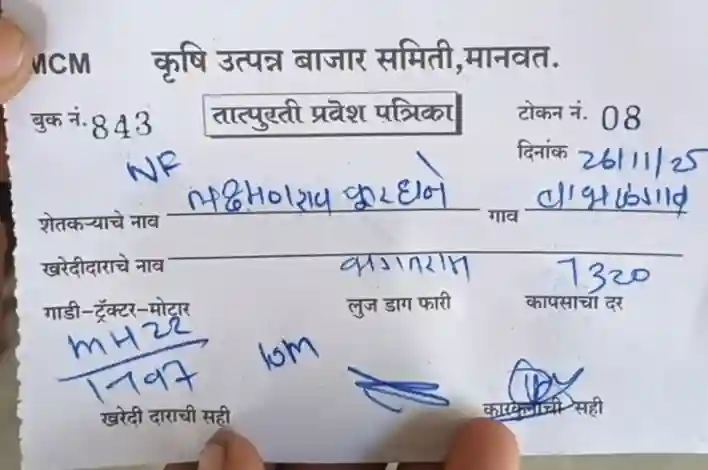 MCM कृषि उत्पन्न बाजार समिती,मानवत.
बुक नं. 843 तात्पुरती प्रवेश पत्रिका टोकन नं. 08
दिनांक 26/11/25
NF
शेतकऱ्याचे नाव लक्ष्मणराव कुरधने गाव बाभळगाव
खरेदीदाराचे नाव
7320
गाडी-ट्रॅक्टर-मोटार लुज डाग फारी कापसाचा दर
MH22
खरेदी दाराची सही कारकुनाची सही